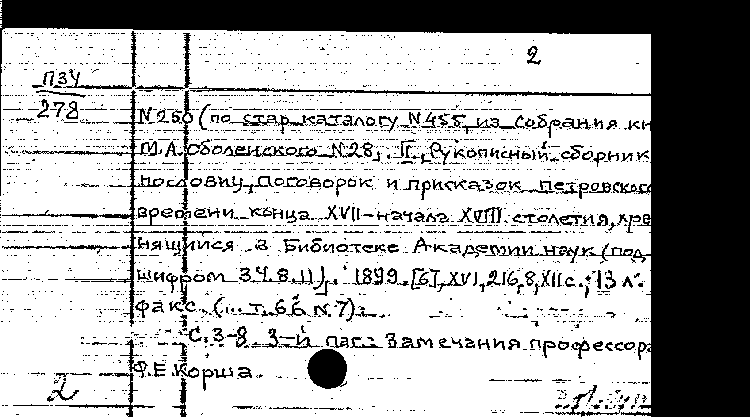 2
ПЗУ
278
N250 (по стар. каталогу N455, из собрания кн
М.А. Оболенского N28,. II., Рукописный сборник
пословиц, поговорок и присказок Петровского
времени конца XVII-начала XVIII столетия, хра
нящийся в Библиотеке Академии наук (под
шифром 34.8.11). 1899. [67, XVI, 216, 8, XII с.; 13 л.
факс. (... т. 66 N 7).
С. 3-8 3-й паг.: Замечания профессора
Ф.Е. Корша.
2